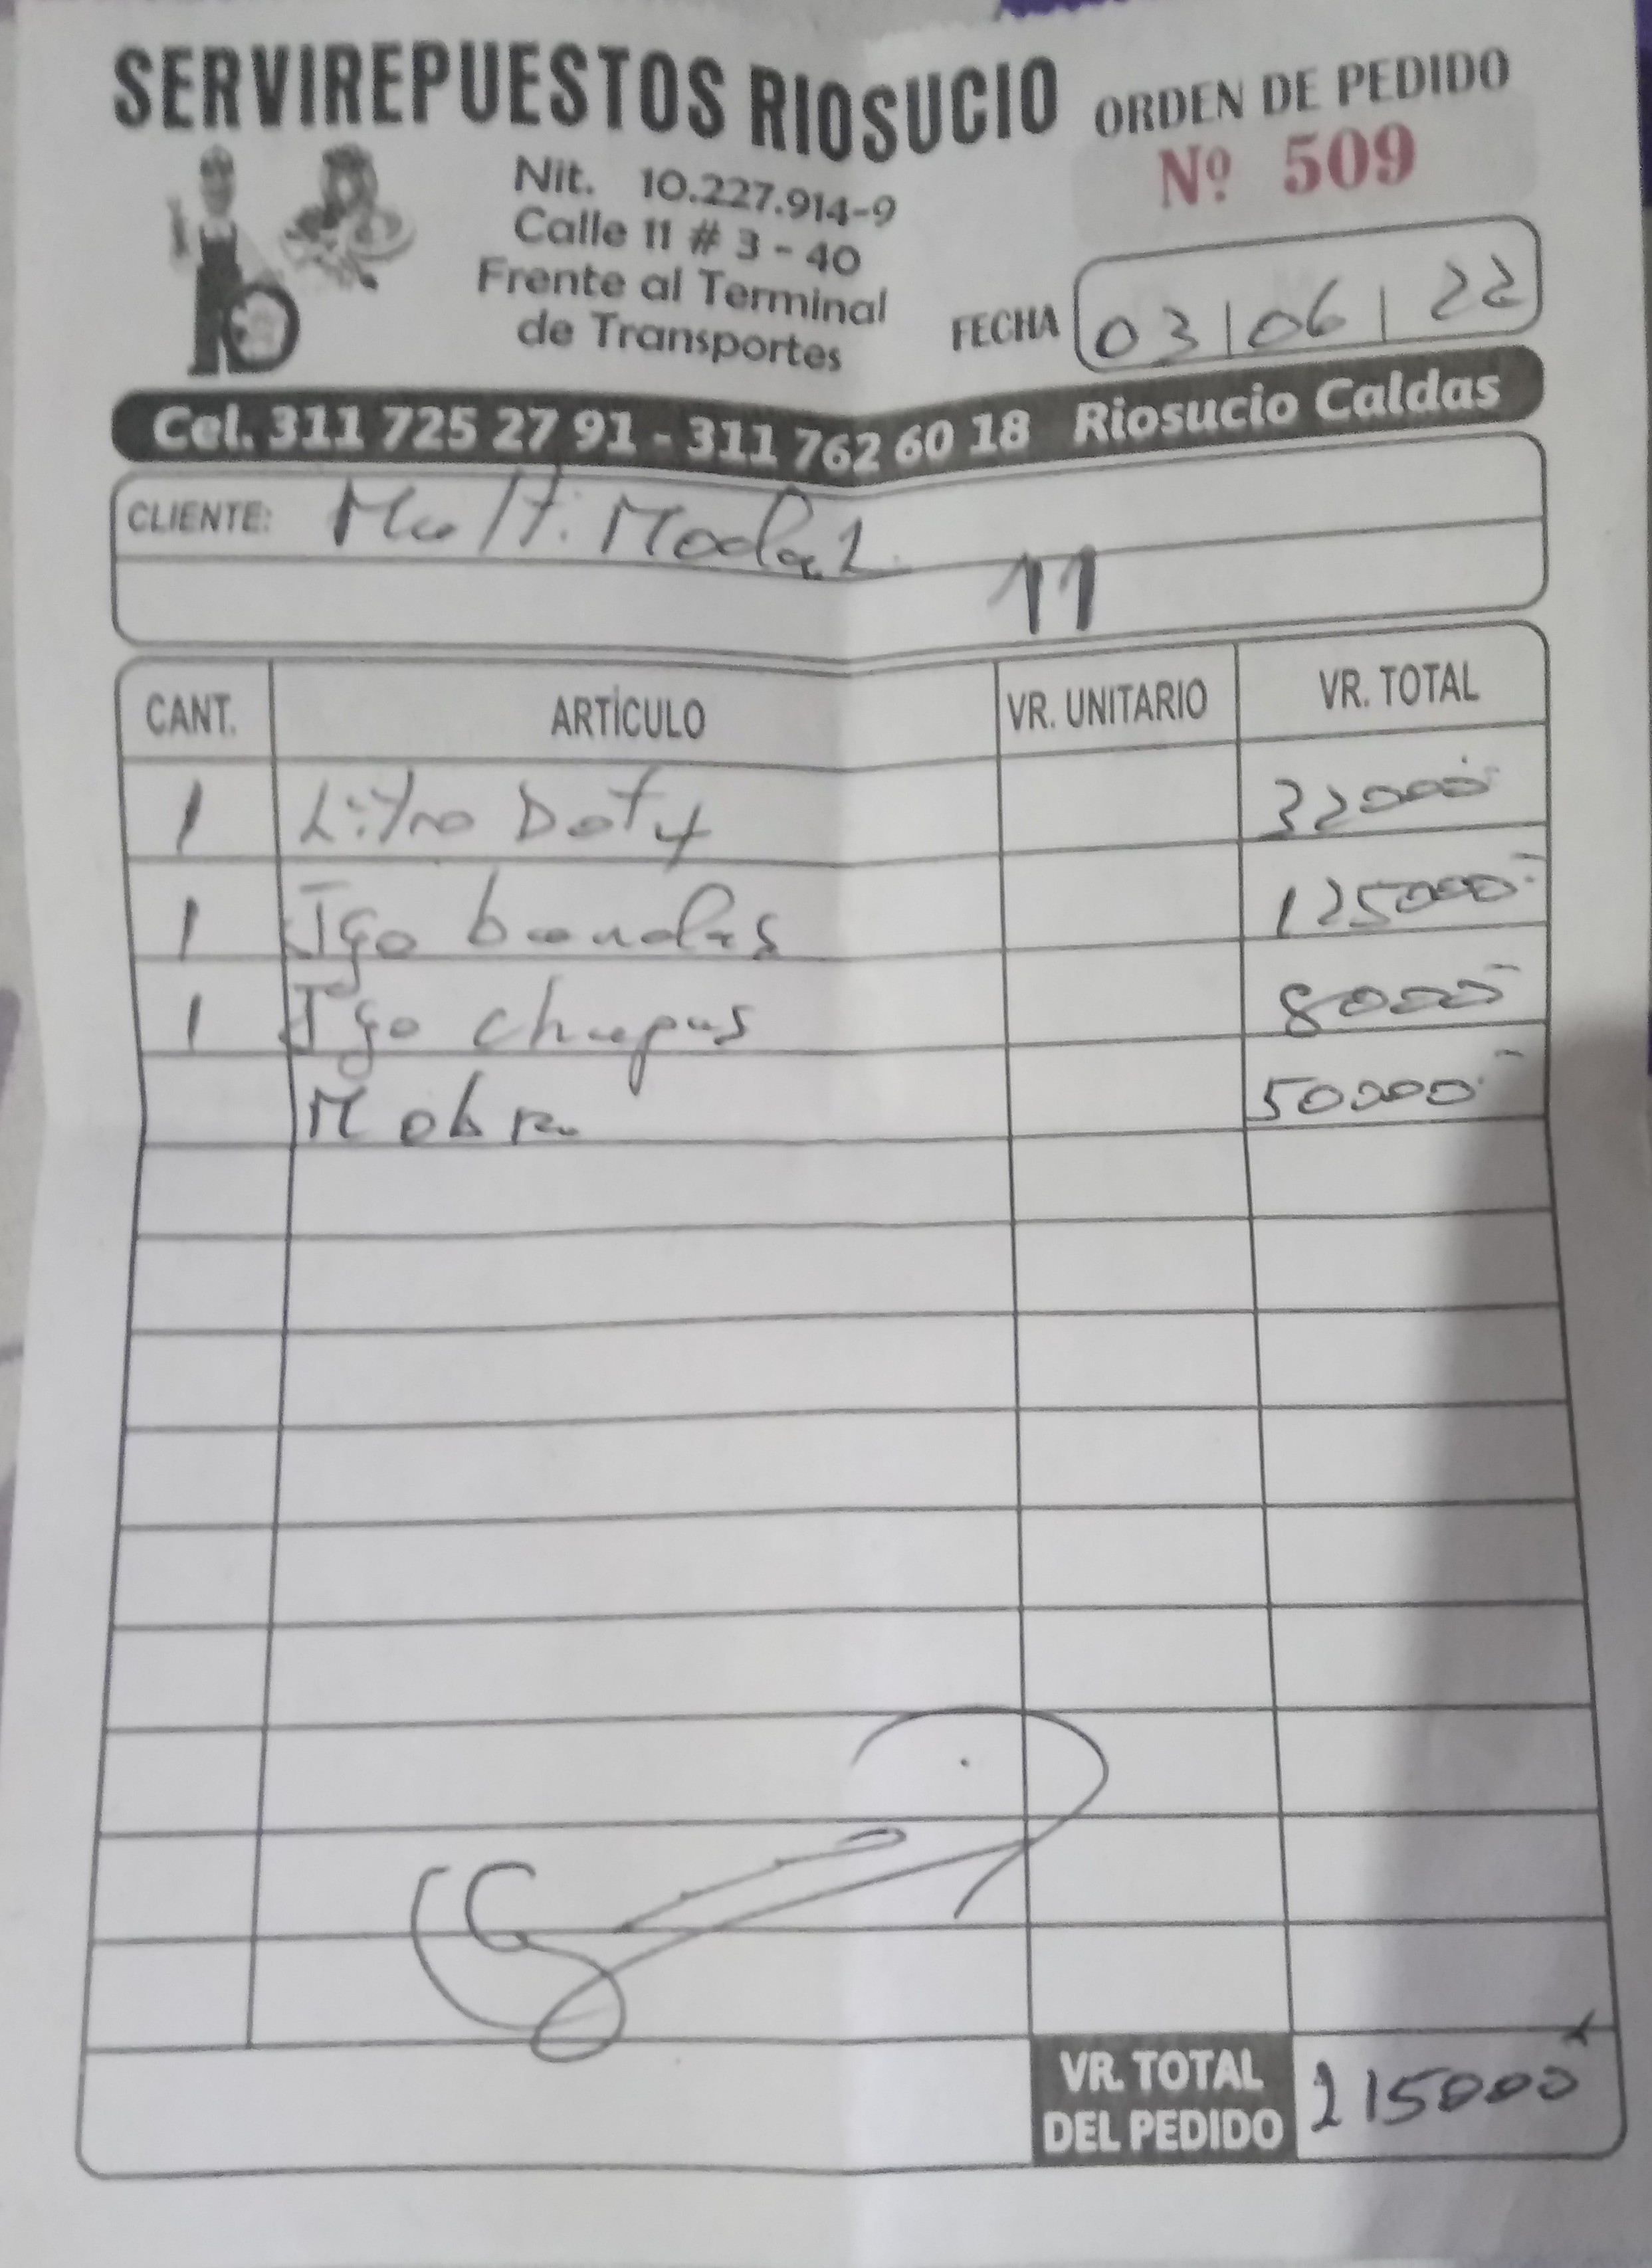 SERVIREPUESTOS RIOSUCIO
ORDEN DE PEDIDO
Nº 509
Nit. 10.227.914-9
Calle 11 # 3 - 40
Frente al Terminal
de Transportes
FECHA 03 06 22
Cel. 311 725 27 91 - 311 762 60 18 Riosucio Caldas
CLIENTE: Multi Modal
11
CANT. ARTÍCULO VR. UNITARIO VR. TOTAL
1 Litro Dot4 32000
1 Jgo bandas 125000
1 Jgo chupas 8000
M obra 50000
VR. TOTAL
DEL PEDIDO 215000